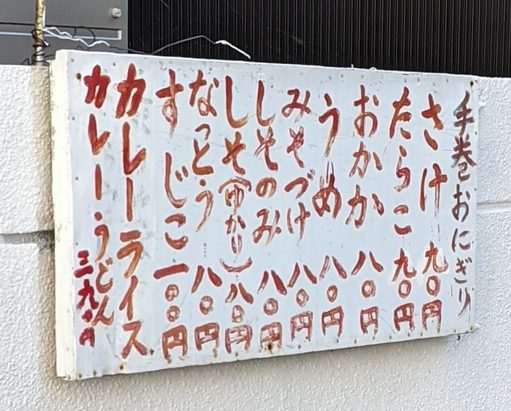 手巻おにぎり
さけ 九〇円
たらこ 九〇円
おかか 八〇円
うめ 八〇円
みそづけ 八〇円
しそのみ 八〇円
しそ(ゆかり) 八〇円
なっとう 八〇円
すじこ 一〇〇円
カレーライス
カレーうどん